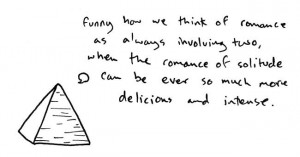 funny how we think of romance
as always involving two,
when the romance of solitude
can be ever so much more
delicious and intense.